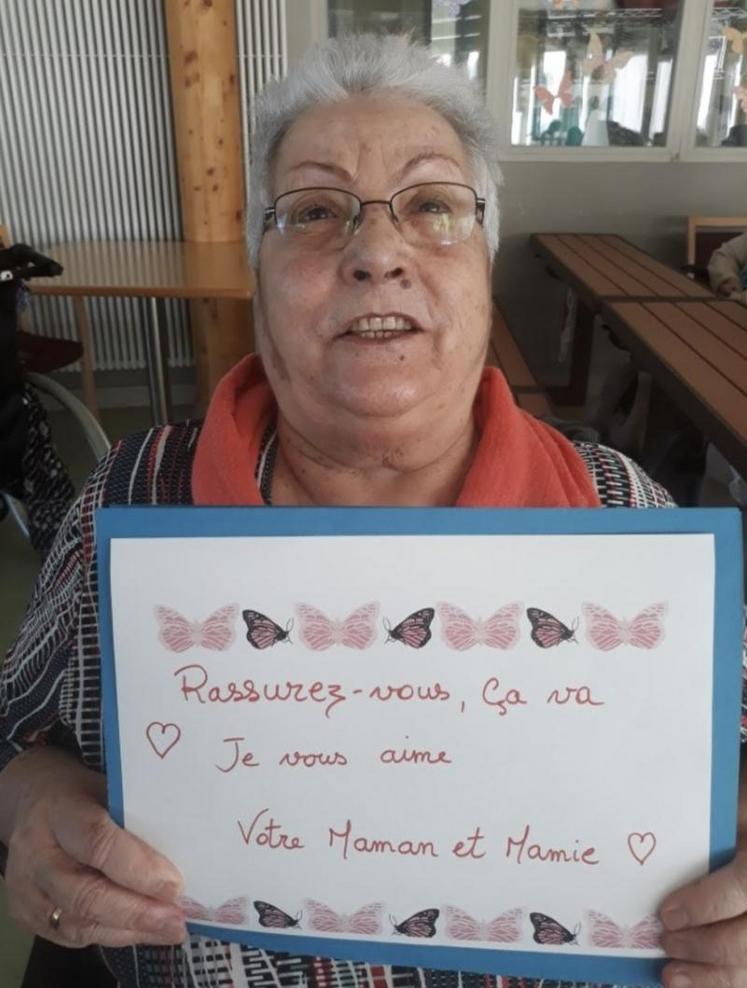 Rassurez-vous, Ça va
Je vous aime
Votre Maman et Mamie